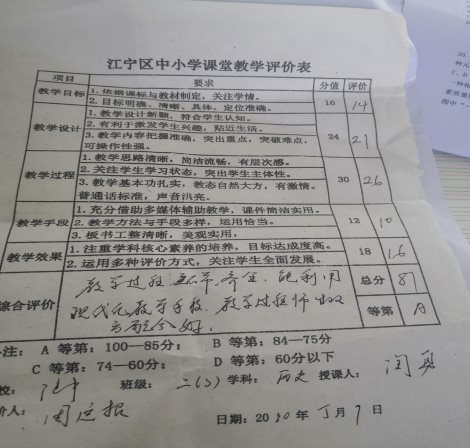 江宁区中小学课堂教学评价表
项目 要求 分值 评价
教学目标 1. 依据课标与教材制定，关注学情。
2. 目标明确、清晰、具体，定位准确。 16 14
教学设计 1. 教学设计新颖，符合学生认知。
2. 有利于激发学生兴趣，贴近生活。
3. 教学内容把握准确，突出重点，突破难点，
可操作性强。 24 21
教学过程 1. 教学思路清晰，简洁流畅，有层次感。
2. 关注学生学习状态，突出学生主体性。
3. 教学基本功扎实，教态自然大方，有激情。
普通话标准，声音洪亮。 30 26
教学手段 1. 充分借助多媒体辅助教学，课件简洁实用。
2. 教学方法与手段多样，运用恰当。
3. 板书工整清晰，美观实用。 12 10
教学效果 1. 注重学科核心素养的培养，目标达成度高。
2. 运用多种评价方式，关注学生全面发展。 18 16
综合评价 教学过程 能利用 总分 87
现代化教学手段，教学过程师
好。 等第 A
注： A 等第：100—85分； B 等第：84—75分
C 等第：74—60分； D 等第：60分以下
校： 班级： 二(3) 学科： 历史 授课人：
价人： 日期：20 年 月 日